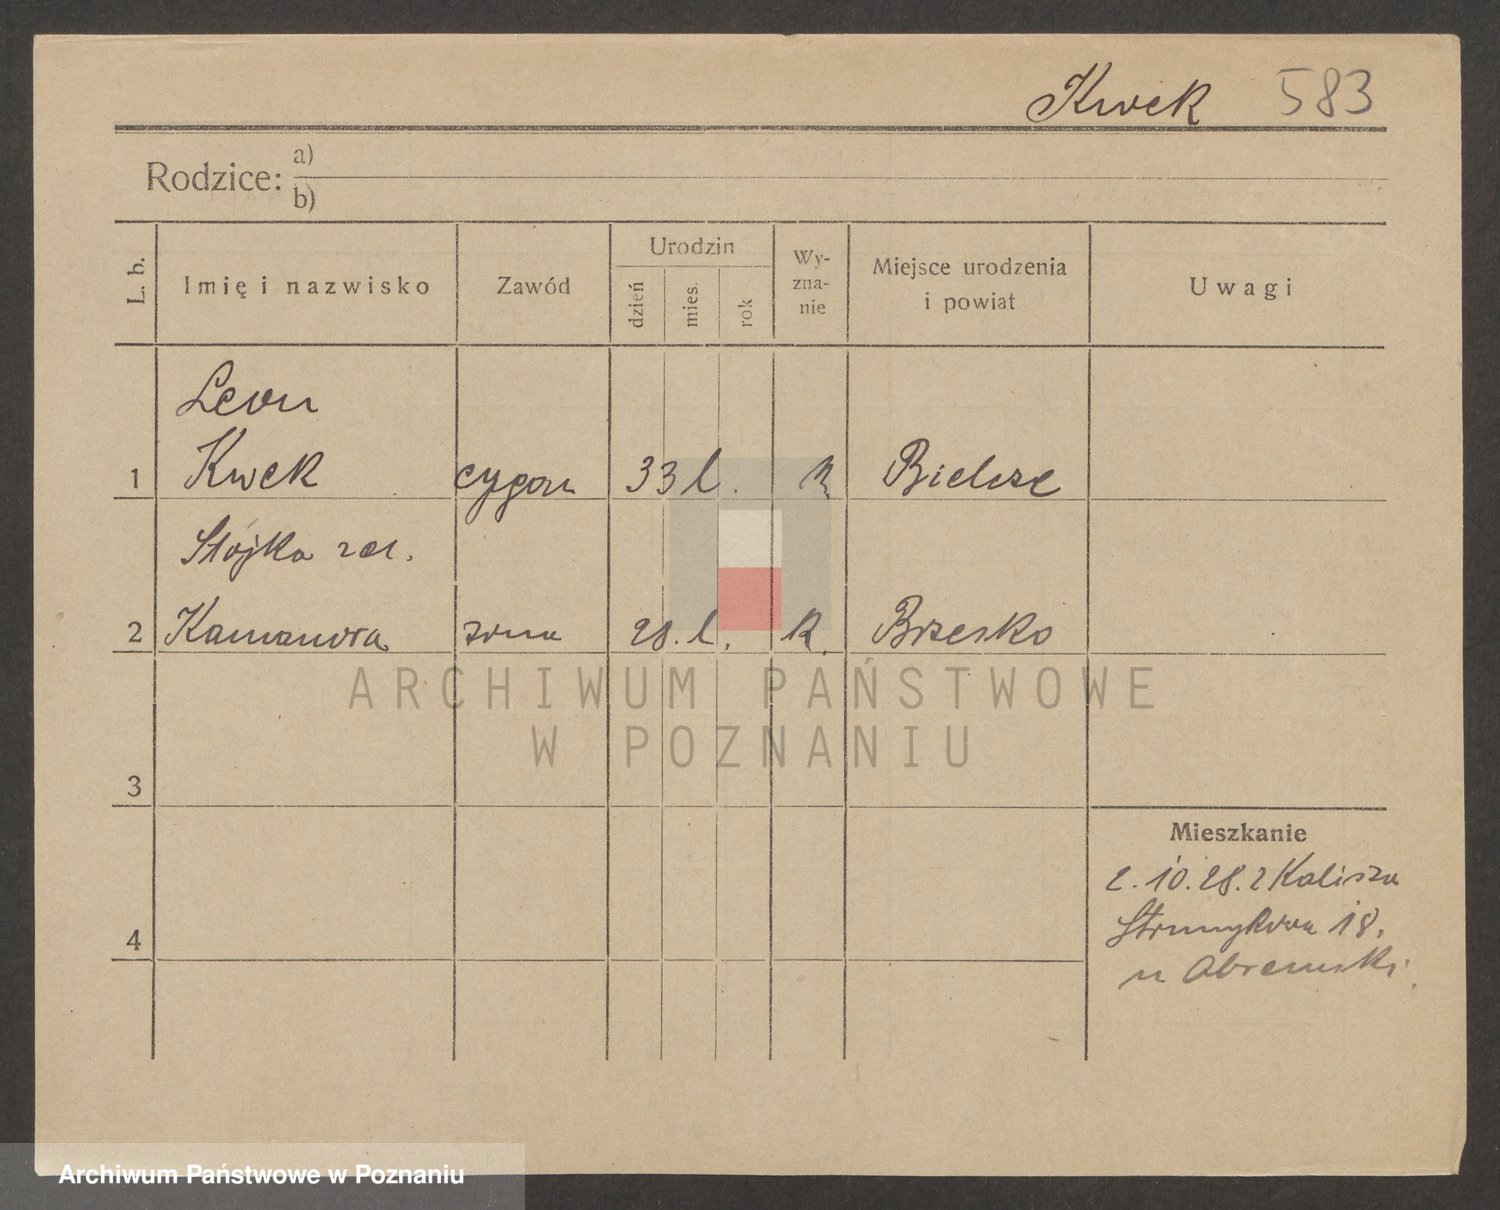 Kwek 583
Rodzice: a)
b)
L. b.
Imię i nazwisko
Zawód
Urodzin
dzień
mies.
rok
Wy-
zna-
nie
Miejsce urodzenia
i powiat
Uwagi
Leon
1 Kwek cygan 33 l. k Bielsze
Stojka
2 żona 28. l. k. Brzesko
3
4
Mieszkanie
2.10.28. z Kalisza
Strumykowa 18.
u
ARCHIWUM PAŃSTWOWE
W POZNANIU
Archiwum Państwowe w Poznaniu